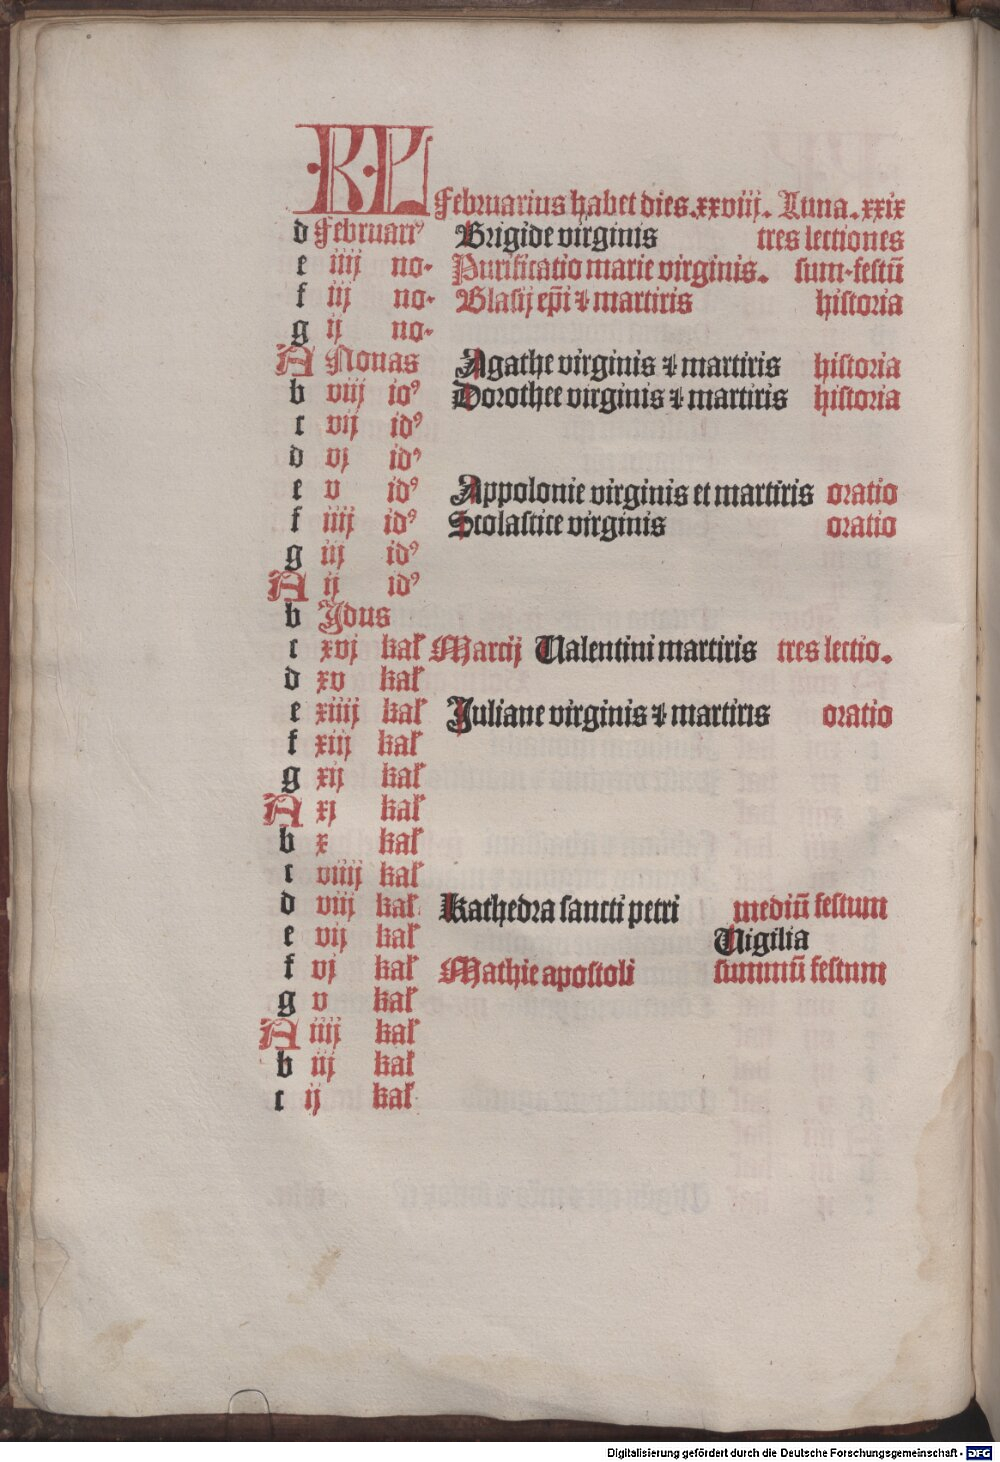 KL Februarius habet dies.xxviij. Luna.xxix
d Februarr⁹ Brigide virginis tres lectiones
e iiij no. Purificatio marie virginis. sum.festū
f iij no. Blasij ep̄i ⁊ martiris historia
g ij no.
A Nonas Agathe virginis ⁊ martiris historia
b viij id⁹ Dorothee virginis ⁊ martiris historia
c vij id⁹
d vj id⁹
e v id⁹ Appolonie virginis et martiris oratio
f iiij id⁹ Scolastice virginis oratio
g iij id⁹
A ij id⁹
b Jdus
c xvj kal̓ Marcij Ualentini martiris tres lectio.
d xv kal̓
e xiiij kal̓ Juliane virginis ⁊ martiris oratio
f xiij kal̓
g xij kal̓
A xj kal̓
b x kal̓
c viiij kal̓
d viij kal̓ Kathedra sancti petri mediū festum
e vij kal̓ Uigilia
f vj kal̓ Mathie apostoli summū festum
g v kal̓
A iiij kal̓
b iij kal̓
c ij kal̓
Digitalisierung gefördert durch die Deutsche Forschungsgemeinschaft - DFG